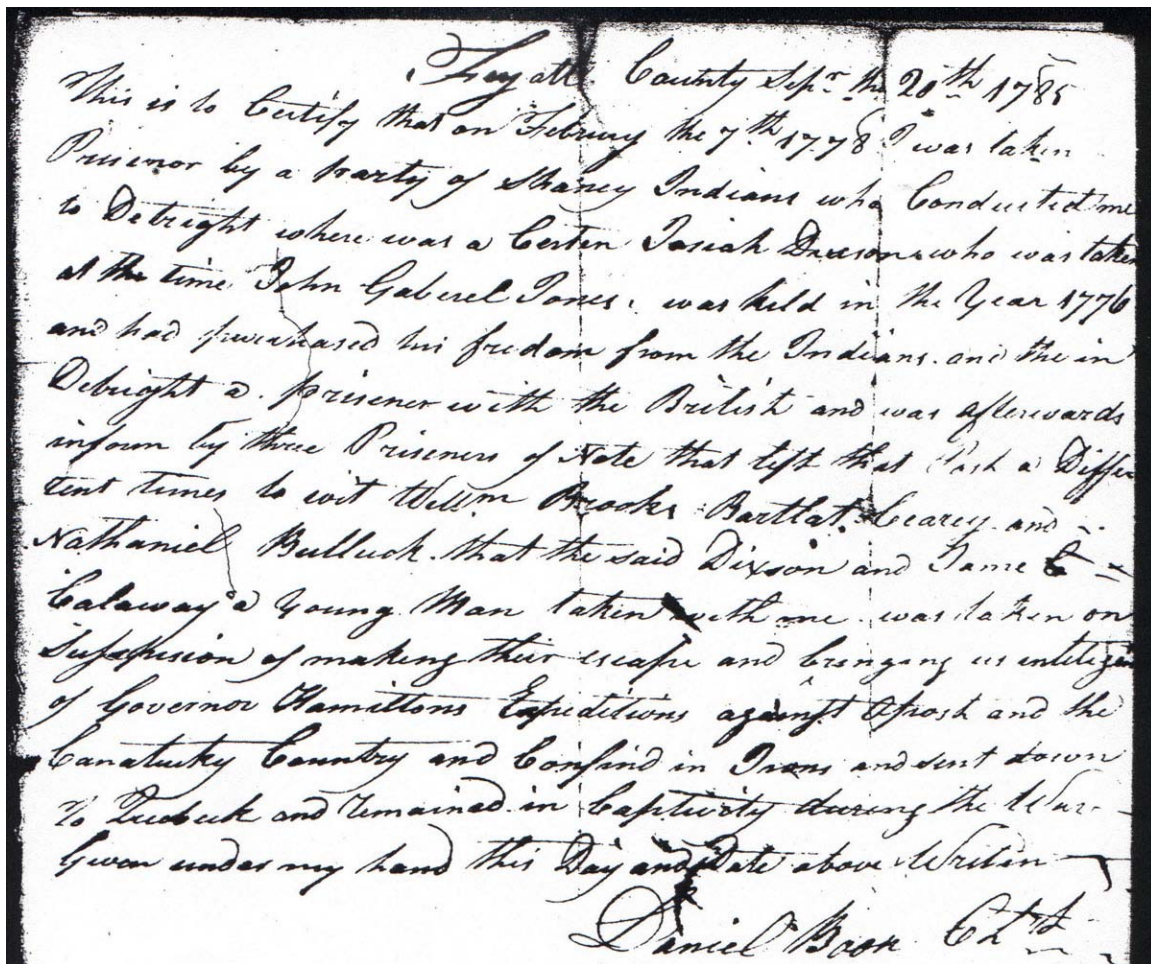 Fayatt County Sepr the 20th 1785
This is to Certify that on Februry the 7th 1778 I was taken
Prisenor by a party of Shaney Indians who Conducted me
to Debright where was a Certen Josiah Dixson who was taken
at the time John Gaberel Jones was kild in the Year 1776
and had purchased his freedom from the Indians and the in
Debright a prisener with the British and was afterwards
inform by three Priseners of Note that left that Post a Diffe
rent times to wit Willm Brooks Bartlat Cearcy and
Nathaniel Bulluck that the said Dixson and Jame
Calaway a Young Man taken with me was taken on
of making their escape and bringing us
of Governor Hamiltons Expeditions against Opost and the
Cantucky Country and Confind in Irons and sent down
to Quebeck and remained in Captivity during the War
Given under my hand this Day and Date above Writin
Daniel Boon